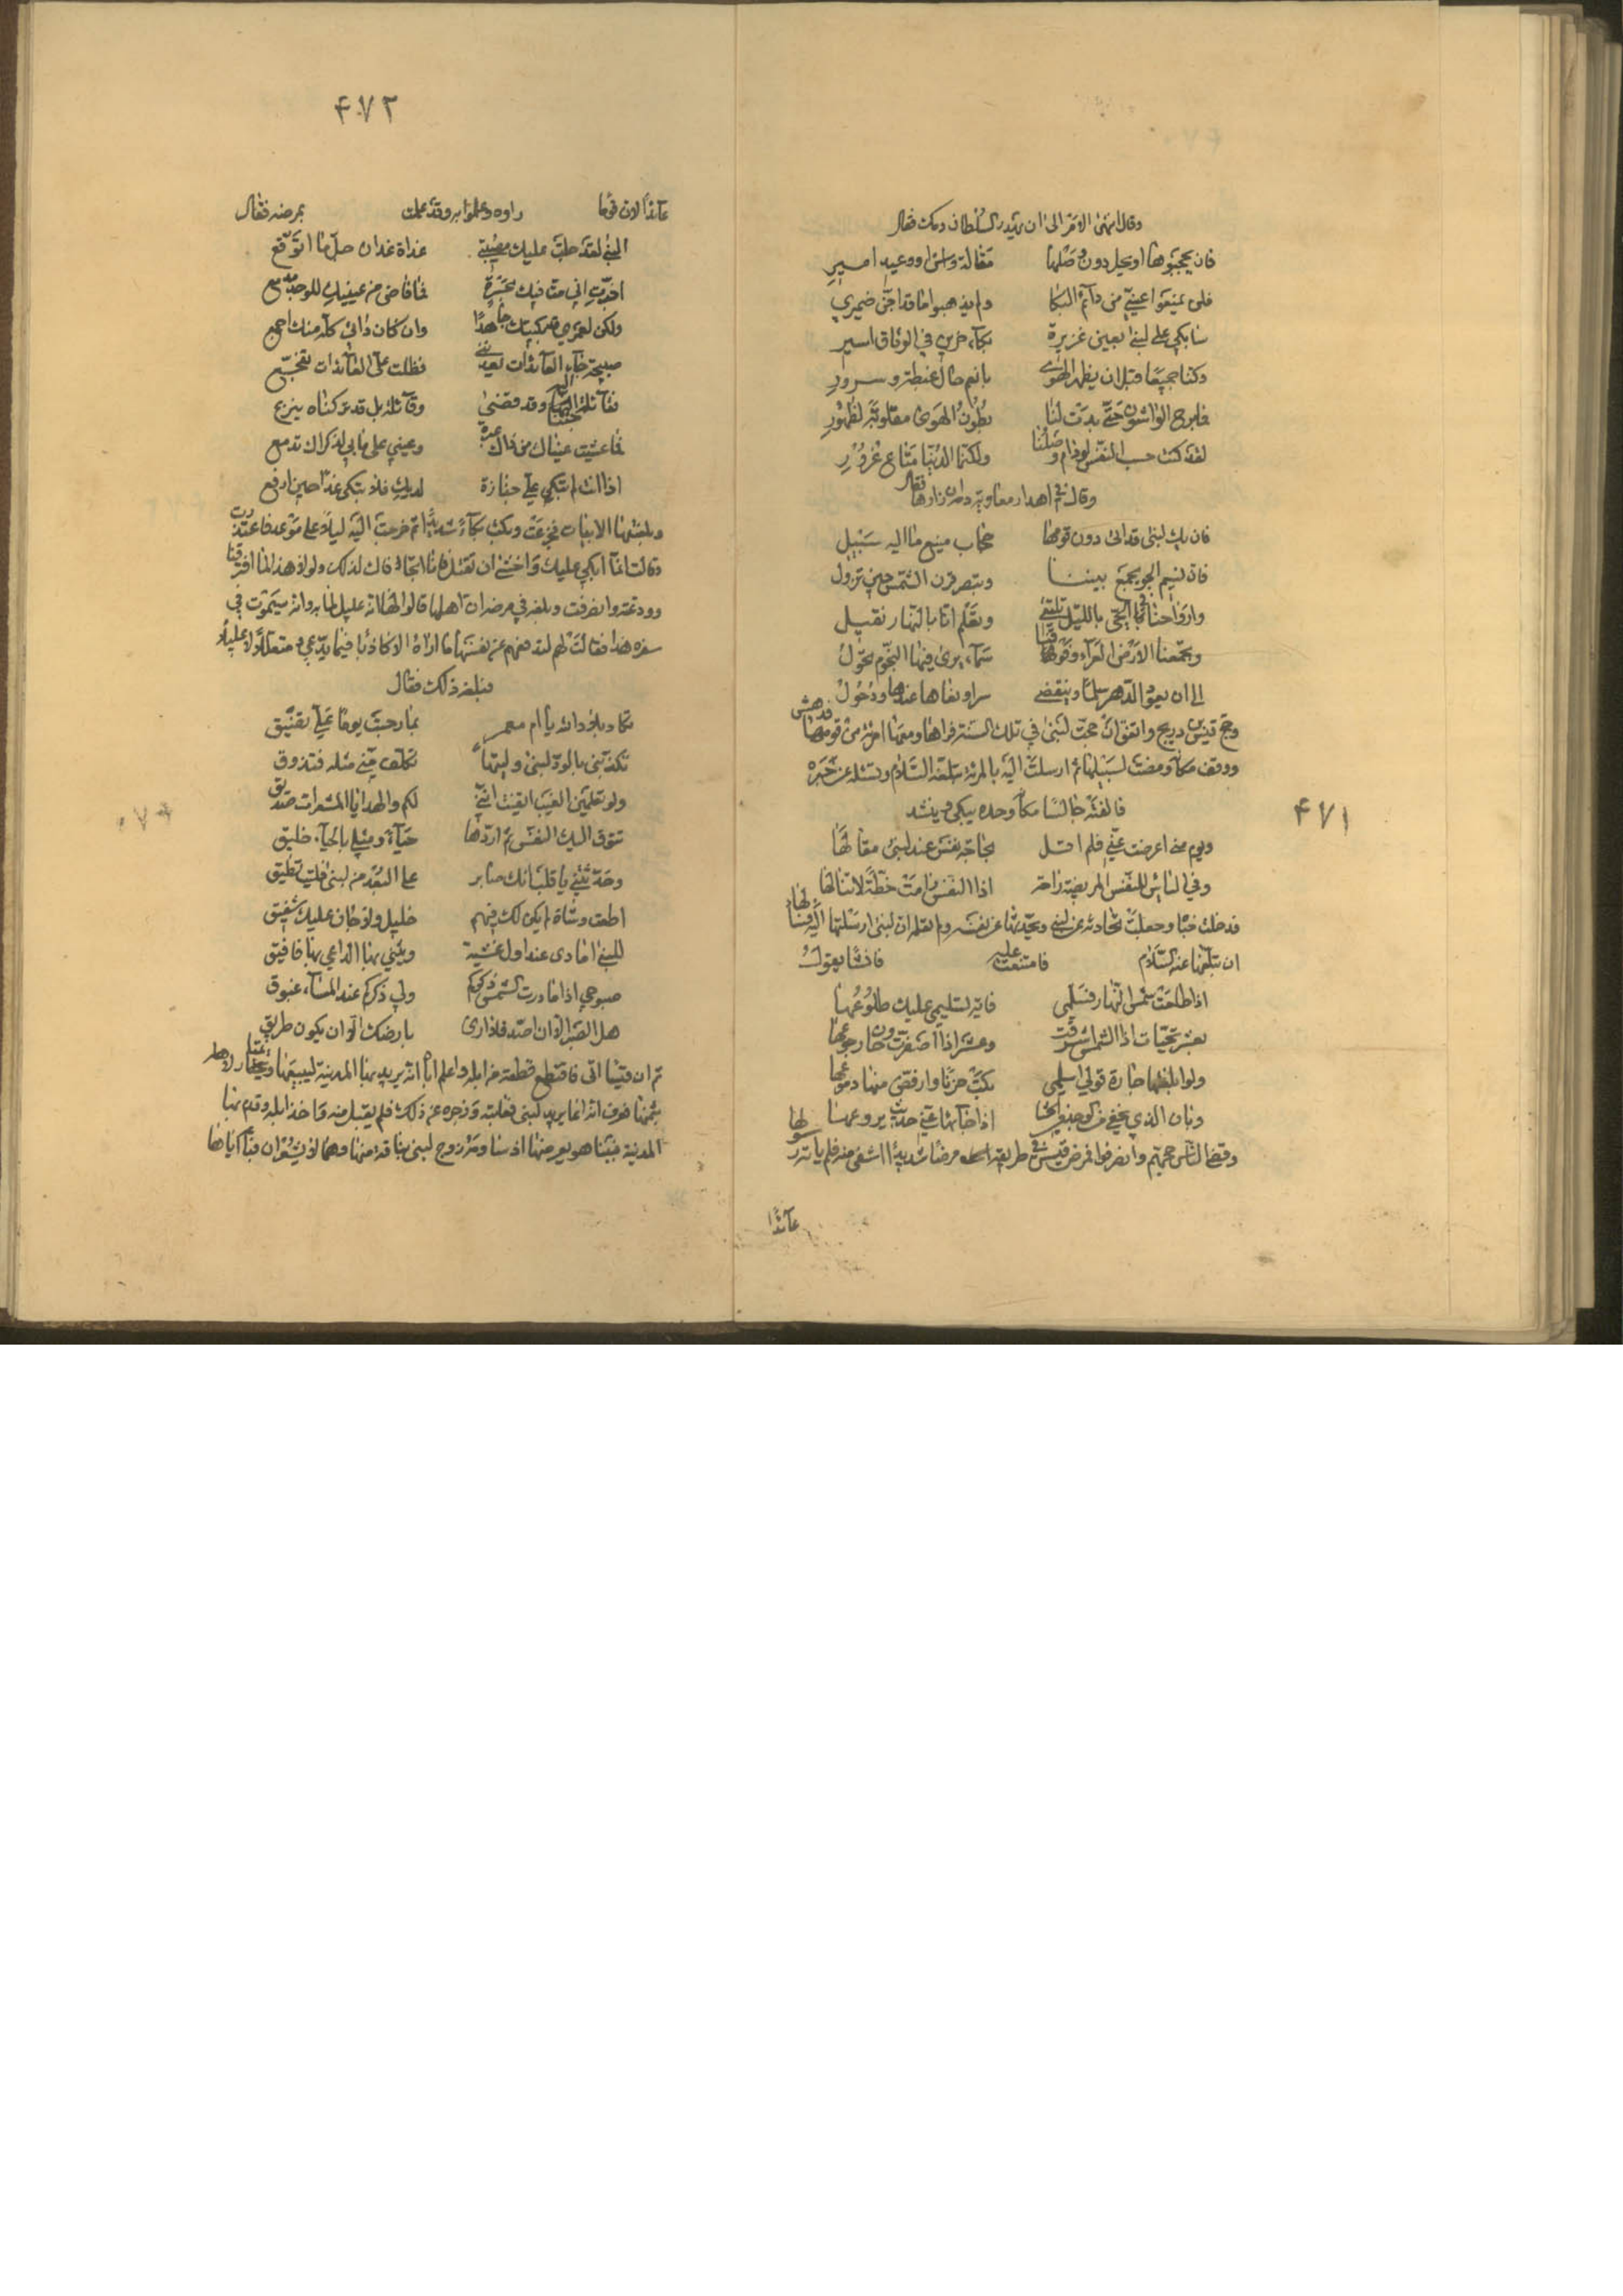 وقال انتهى الامر الى ان يهدر السلطان دمك فقال
فان يحجبوها او يحل دون وصلها مقالة واش او وعيد امير
فلن يمنعوا عيني من دآئم البكا ولم يذهبوا ما قد اجن ضميري
سابكي على لبنى بعين غزيرة بكآء حزين في الوثاق اسير
وكنا جميعا قبل ان يظهر الهوى بانعم حال غبطة وسرور
فما برح الواشون حتى بدت لنا بطون الهوى مقلوبة لظهور
لقد كنت حسب النفس لو دام وصلنا ولكنما الدنيا متاع غرور
وقال في اهدار معاوية دمه ان زارها فقال
فان يك لبنى قد اتى دون قومها حجاب منيع ما اليه سبيل
فان نسيم الجو يجمع بيننا ونبصر قرن الشمس حين تزول
وارواحنا في الحي بالليل تلتقي ونعلم انا بالنهار نقيل
وتجمعنا الارض القرآء وفوقنا سمآء يرى فيها النجوم تحول
الى ان يعود الدهر سلما وينقضي
وحج قيس بن ذريح واتفق ان حجت لبنى في تلك السنة فراها ومعها امرئة من قومها فدهش
ووقف مكانه ومضت لسبيلها ثم ارسلت اليه بالمرئة تبلغه السلام وتسئله عن خبره
فالفته جالسا مكانه وحده يبكي وينشد
ويوم منى اعرضت عني فلم اقل بحاجة نفس عند لبنى مقالها
وفي الياس للنفس المريضة راحة اذا النفس رامت خطة لا تنالها
فدخلت خباه وجعلت تحادثه عن لبنى ويحدثها عن نفسه ولم تعلمه ان لبنى ارسلتها اليه فسالها
ان تبلغها عنه السلام فامتنعت عليه فانشا يقول
اذا طلعت شمس النهار فسلمي فاية تسليمي عليك طلوعها
بعشر تحيات اذا الشمس اشرقت وعشر اذا اصفرت وحان رجوعها
ولو ابلغتها جارة قولي اسلمي بكت حزنا وارفض منها دموعها
وبان الذي تخفي من الوجد في الحشا اذا جآئها عني حديث يروعها
وقضى الناس حجهم وانصرفوا فمرض قيس في طريقه مرضا شديدا اشفى منه فلم ياته رسولها
عآئدا
۴۷۱
۴۷۲
عآئدا لان قومها راوه وعلموا به وقد علمت بمرضه فقال
البنى لقد جلت عليك مصيبتي غداة غد ان حل ما اتوقع
ولكن لعمري قد بكيتك جاهدا وان كان دآئي كله منك اجمع
صبيحة جآء العآئدات يعدنني فظلت على العآئدات تفجع
فقآئلة جئنا اليه وقد قضى وقآئلة بل قد تركناه ينزع
فما غشيت عيناك من ذاك عبرة وعيني على ما بي لذكراك تدمع
اذا انت لم تبكي علي جنازة لديك فلا تبكي غدا حين ارفع
وبلغتها الابيات فجزعت وبكت بكآء شديدا ثم خرجت اليه ليلا على موعد فاعتذرت
وقالت انما ابكي عليك واخشى ان تقتل فانا اتحاماك لذلك ولولا هذا لما افترقنا
وودعته وانصرفت وبلغه في مرضه ان اهلها قالوا لها انه عليل لما به وانه سيموت في
سفره هذا فقالت لهم لتدفعهم عن نفسها ما اراه الا كاذبا فيما يدعي متعللا لا عليلا
فبلغه ذلك فقال
تكاد بلاد الله يا ام معمر بما رحبت يوما علي تضيق
تكذبني بالود لبنى وليتها تكلف مني مثله فتذوق
ولو تعلمين الغيب ايقنت انني لكم والهدايا المشعرات صديق
تتوق اليك النفس ثم اردها حيآء ومثلي بالحيآء خليق
وحدثتني يا قلب انك صابر على البعد من لبنى فليت تطيق
اطعت وشاة لم يكن لك فيهم خليل ولا جان عليك شفيق
صبوحي اذا ما ذرت الشمس ذكركم ولي ذكركم عند المسآء غبوق
هل الصبر الا ان اصد فلا ارى بارضك الا ان يكون طريق
ثم ان قيسا اتى فاقتطع قطعة من ابله واعلم اباه انه يريد بها المدينة ليبيعها ويمتار لاهله
بثمنها فعرف انه انما يريد لبنى فعاتبه وزجره عن ذلك فلم يقبل منه واخذ ابله وقدم بها
المدينة فبينا هو يعرضها اذ ساومه زوج لبنى بناقة منها وهما لا يتعارفان فباعه اياها